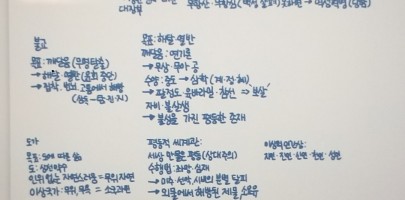 대장부
불교
목표: 깨달음 (무명탈출)
→ 해탈·열반 (윤회 중단)
→ 집착, 번뇌, 고통에서 해방
목표: 해탈·열반
깨달음: 연기론
→ 무상·무아·공
수행: 중도 → 삼학 (계·정·혜)
→ 팔정도·육바라밀·참선 → 보살
자비: 불살생
→ 불성을 가진 평등한 존재
도가
도: 선악
인위 없는 자연스러움 = 무위자연
이상국가: 무위, 무욕 = 소국과민
평등적 세계관:
세상 만물은 평등 (상대주의)
수행법: 좌망·심재
→ 미추·선악, 시비의 분별 탈피
→ 외물에서 해방된 제물, 소요유
이상적인간상
지인·진인·신인·천인·성인